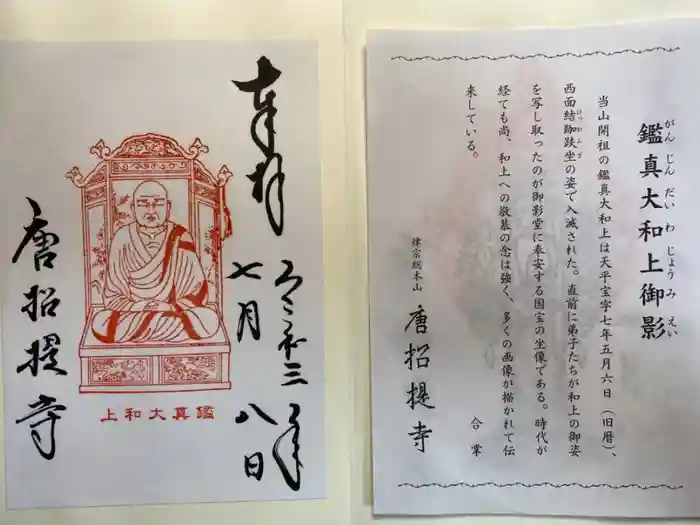 奉拝
令和三年
七月八日
上和大真鑑
唐招提寺
鑑真大和上御影
がんじんだいわじょうみえい
当山開祖の鑑真大和上は天平宝字七年五月六日（旧暦）、
西面結跏趺坐の姿で入滅された。直前に弟子たちが和上の御姿
けっかふざ
を写し取ったのが御影堂に奉安する国宝の坐像である。時代が
経ても尚、和上への敬慕の念は強く、多くの画像が描かれて伝
来している。
合掌
律宗総本山
唐招提寺